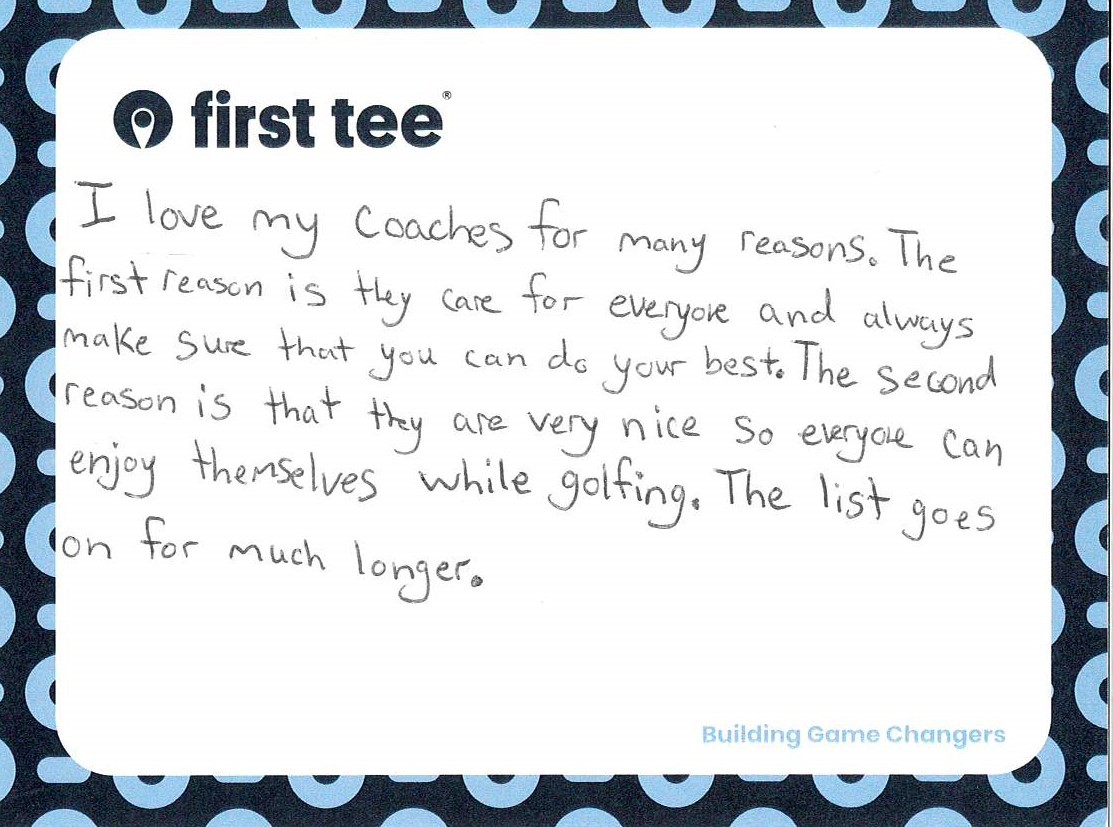 first tee®
I love my coaches for many reasons. The
first reason is they care for everyone and always
make sure that you can do your best. The second
reason is that they are very nice so everyone can
enjoy themselves while golfing. The list goes
on for much longer.
Building Game Changers